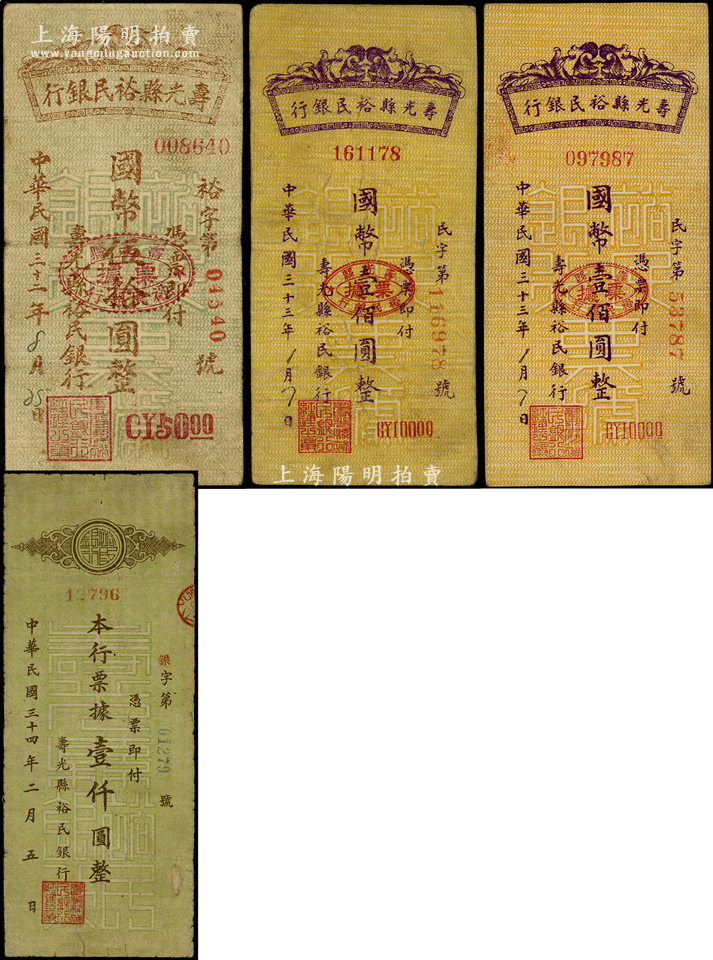 上海陽明拍賣
www.yangmingauction.com
行銀民裕縣光壽
008640
裕字第04340號
憑票即付
國幣伍拾圓整
票據
壽光縣裕民銀行
中華民國三十二年8月25日
CY50.00
行銀民裕縣光壽
161178
民字第116978號
憑票即付
國幣壹佰圓整
票據
壽光縣裕民銀行
中華民國三十三年1月7日
CY10000
上海陽明拍賣
行銀民裕縣光壽
097987
民字第53787號
憑票即付
國幣壹佰圓整
票據
壽光縣裕民銀行
中華民國三十三年1月7日
CY10000
12796
銀字第01279號
憑票即付
本行票據壹仟圓整
壽光縣裕民銀行
中華民國三十四年二月五日